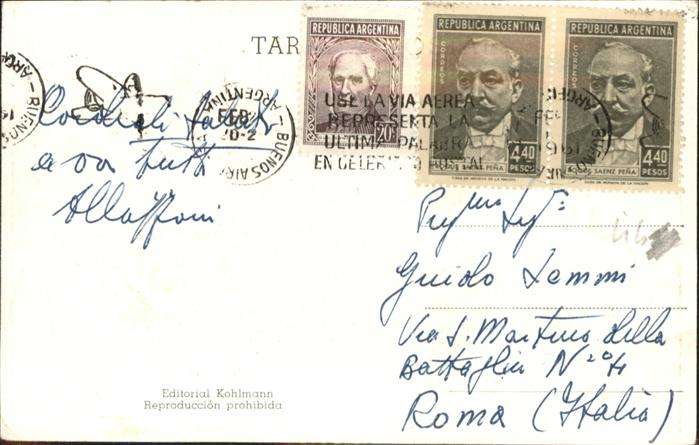 TAR
REPUBLICA ARGENTINA
20c
REPUBLICA ARGENTINA
CORREOS
4.40
PESOS
ROQUE SAENZ PEÑA
REPUBLICA ARGENTINA
CORREOS
4.40
PESOS
ROQUE SAENZ PEÑA
BUENOS AIRES
ARGENTINA
FEB
USE LA VIA AEREA
REPRESENTA LA
ULTIMA PALABRA
EN CELERIDAD POSTAL
Cordiali saluti
a voi tutti
Guido Lemmi
Via S. Martino della
Battaglia N° 4
Roma (Italia)
Editorial Kohlmann
Reproducción prohibida